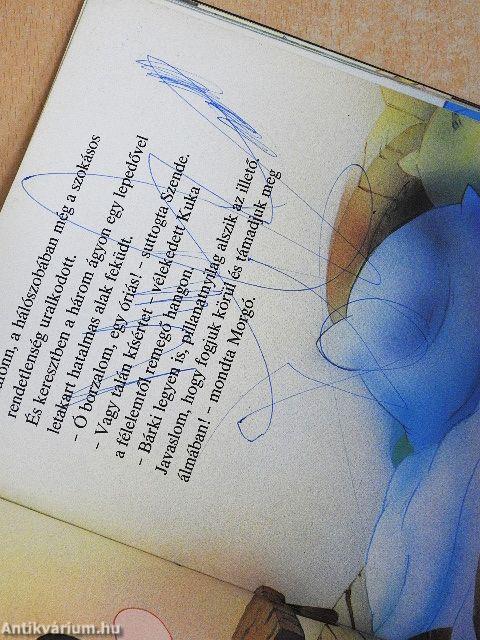 a hálószobában még a szokásos
rendetlenség uralkodott.
És keresztben a három ágyon egy lepedővel
letakart hatalmas alak feküdt.
- Ó borzalom, egy óriás! - suttogta Szende.
- Vagy talán kísértet - vélekedett Kuka
a félelemtől remegő hangon.
- Bárki legyen is, pillanatnyilag alszik az illető.
Javaslom, hogy fogjuk körül és támadjuk meg
álmában! - mondta Morgó.
Antikvárium.hu